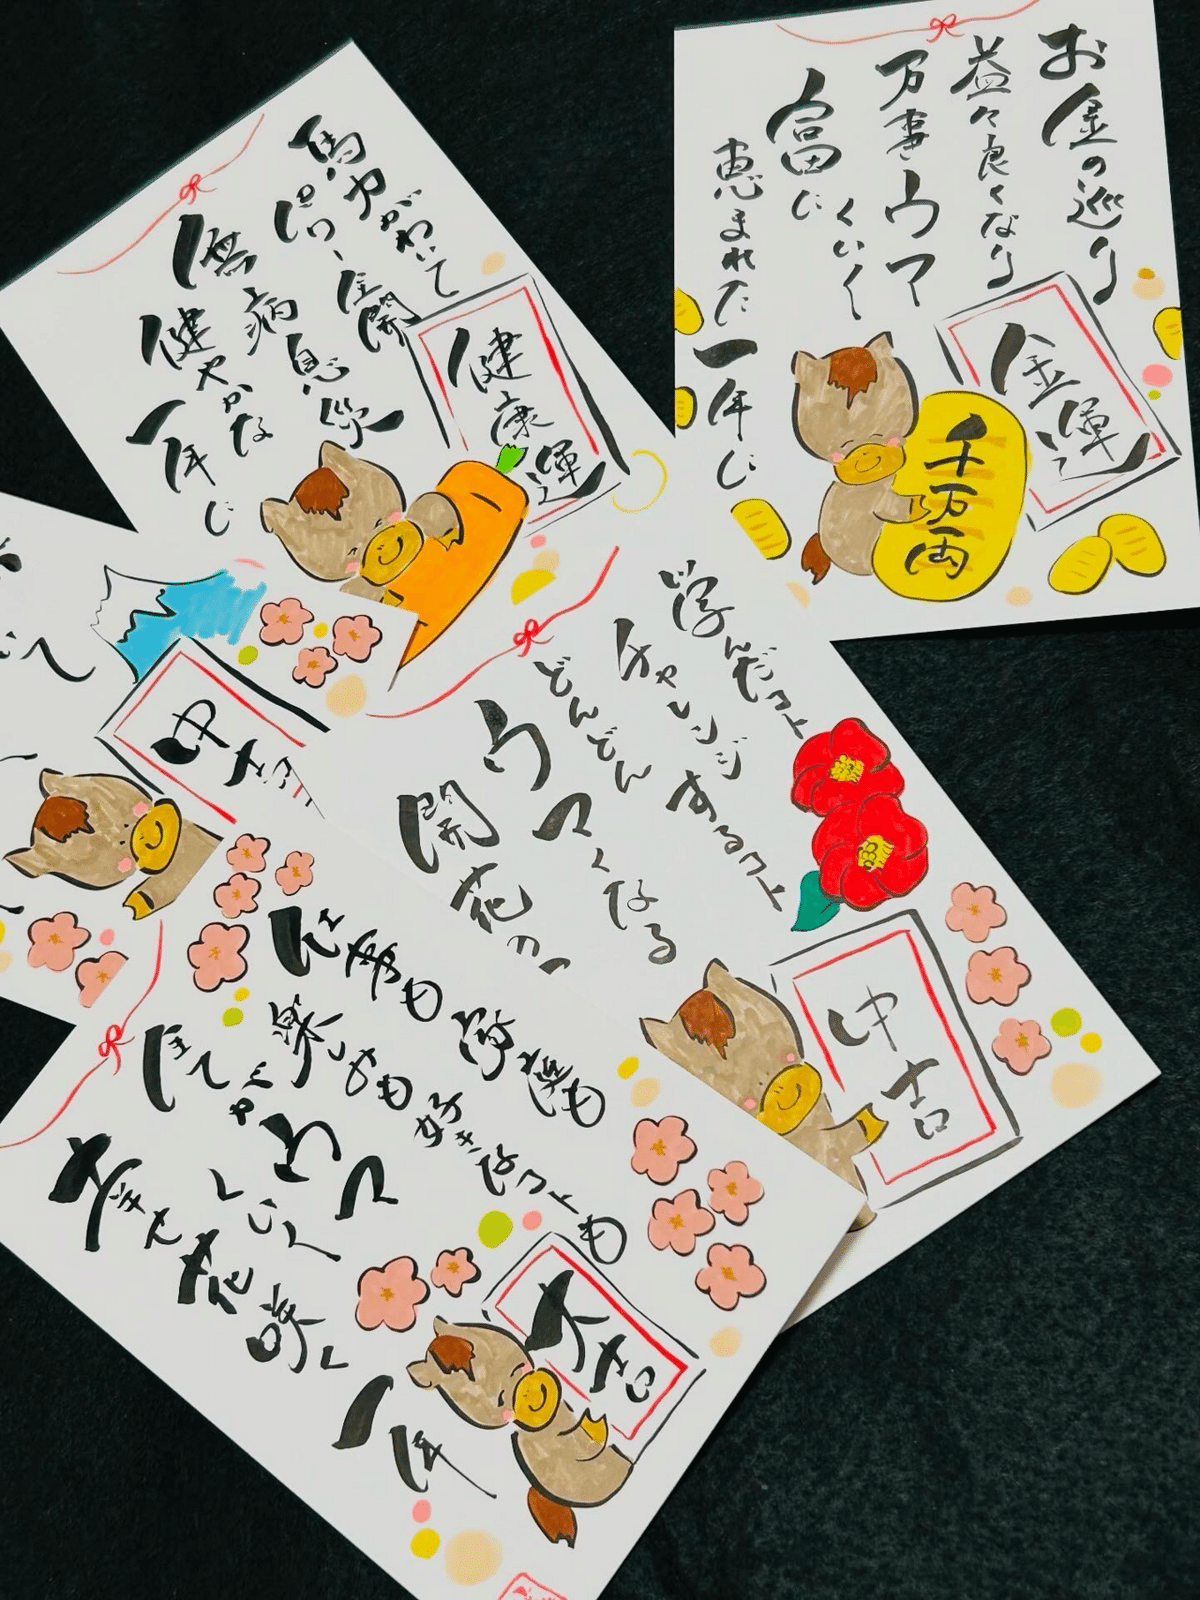 お金の巡り
益々良くなり
万事ウマ
くいく
富に
恵まれた
一年に
金運
千万両
馬力がわいて
パワー全開
無病息災
健やかな
一年に
健康運
いて
中吉
学んだコト
チャレンジするコト
どんどん
ウマくなる
開花の
中吉
仕事も家庭も
楽しみも好きなコトも
全てがウマ
くいく
幸せ花咲く
一年
大吉